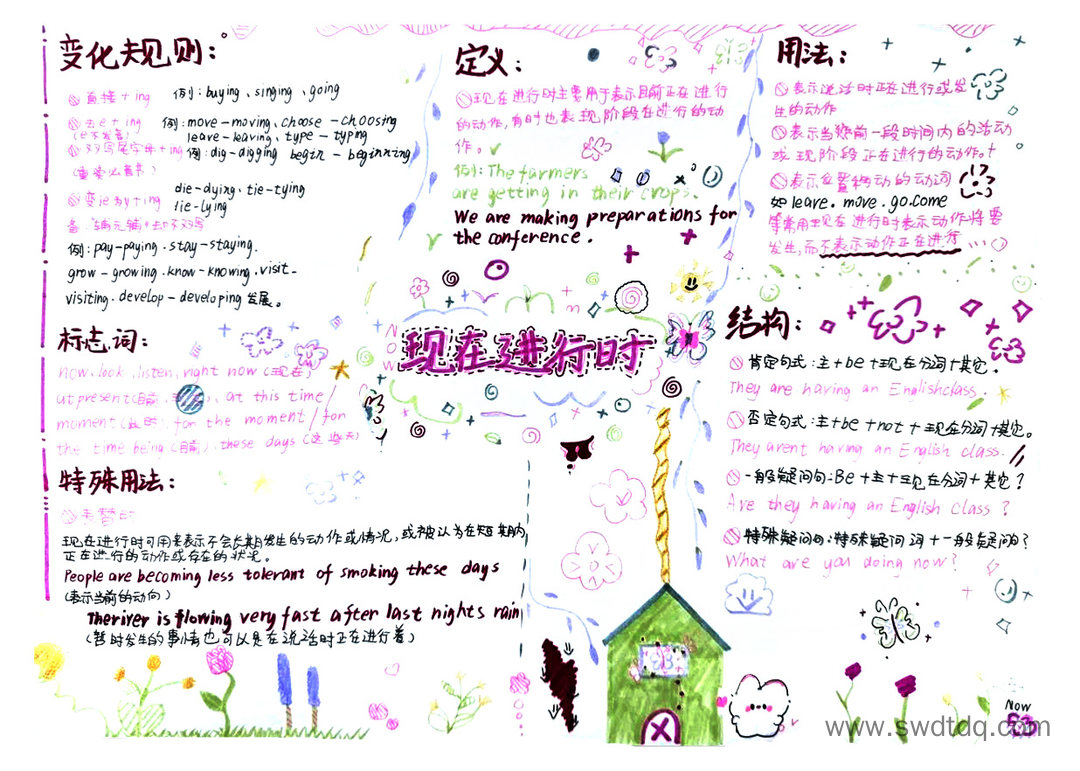 变化规则:
直接+ing 例:buying、singing、going
去e+ing 例:move-moving、choose-choosing
(e不发音) leave-leaving、type-typng
双写尾字母+ing 例:dig-digging begin-beginning
(重读闭音节)
变ie为y+ing die-dying、tie-tying
lie-lying
例:pay-paying.stay-staying.
grow-growing.know-knowing.visit-
visiting.develop-developing发展。
标志词:
now.look.listen.right now(现在)
at present(目前), at this time/
moment(此时).for the moment/for
the time being(目前).these days(这些天)
特殊用法:
现在进行时可用来表示不会长期发生的动作或情况,或被认为在短期内
正在进行的动作或存在的状况。
People are becoming less tolerant of smoking these days
(表示当前的动向)
Theriver is flowing very fast after last nights rain
(暂时发生的事情也可以是在说话时正在进行着)
定义:
现在进行时主要用于表示目前正在进行
的动作,有时也表现阶段在进行的动
作。
例:The farmers
are getting in their crops.
We are making preparations for
the conference.
NOW
现在进行时
用法:
表示说话时正在进行或发
生的动作
表示当前一段时间内的活动
或现阶段正在进行的动作。
表示位置移动的动词
如leave.move.go.come
等常用现在进行时表示动作将要
发生,而不表示动作正在进行
结构:
肯定句式:主+be+现在分词+其它.
They are having an Englishclass.
否定句式:主+be+not+现在分词+其它。
They arent having an English class.
一般疑问句:Be+主+现在分词+其它?
Are they having an English class?
特殊疑问句.特殊疑问词+一般疑问句?
What are you doing now?
Now
www.swdtdq.com